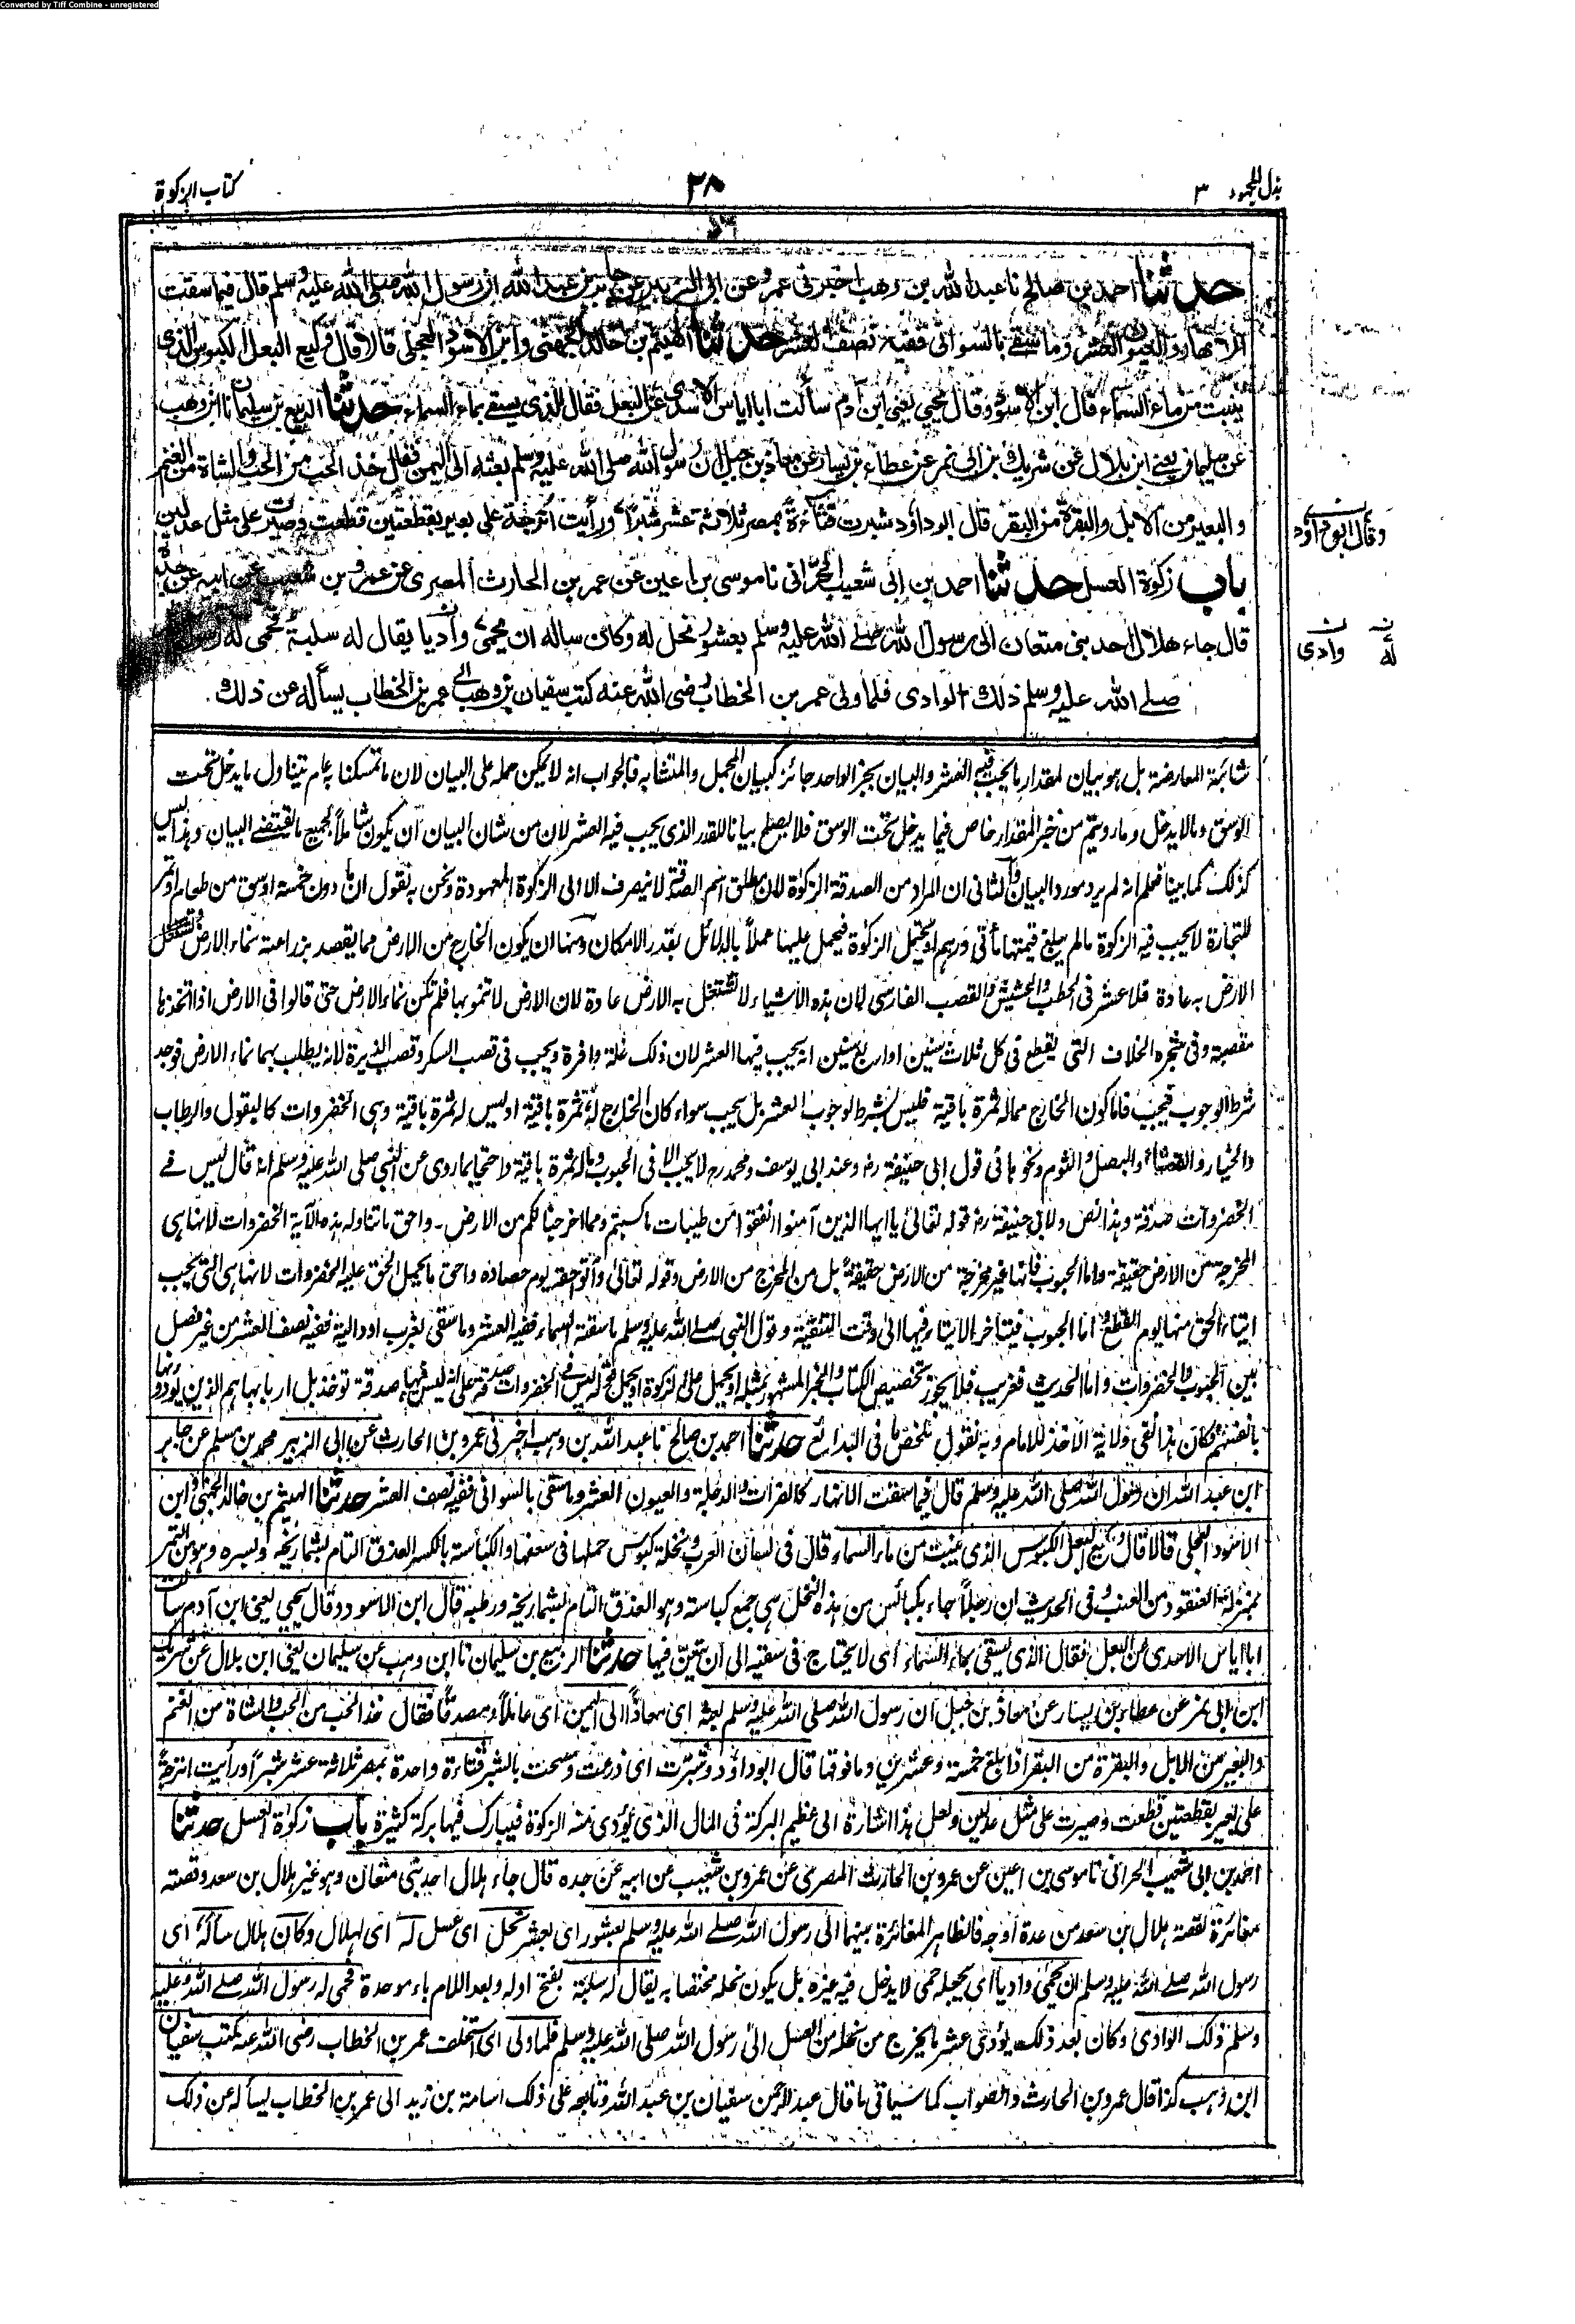 Converted by Tiff Combine - unregistered
بذل المجهود ٣
٢٨
كتاب الزكوة
حدثنا احمد بن صالح نا عبد الله بن وهب اخبرنى عمرو عن ابى الزبير عن جابر بن عبد الله ان رسول الله صلى الله عليه وسلم قال فيما سقت
الانهار والعيون العشر وما سقى بالسوانى ففيه نصف العشر حدثنا الهيثم بن خالد الجهنى وابن الاسود العجلى قالا قال وكيع البعل الكبوس الذى
ينبت من ماء السماء قال ابن الاسود وقال يحيى يعنى ابن آدم سألت ابا اياس الاسدى عن البعل فقال الذى يسقى بماء السماء حدثنا الربيع بن سليمان نا ابن وهب
عن سليمان يعنى ابن بلال عن شريك بن ابى نمر عن عطاء بن يسار عن معاذ بن جبل ان رسول الله صلى الله عليه وسلم بعثه الى اليمن فقال خذ الحب من الحب والشاة من الغنم
والبعير من الابل والبقرة من البقر قال ابوداؤد شبرت قثاءة بمصر ثلاثة عشر شبرا ورأيت اترجة على بعير بقطعتين قطعت وصيرت على مثل عدلين
وقال ابوداؤد
باب زكوة العسل حدثنا احمد بن ابى شعيب الحرانى نا موسى بن اعين عن عمر بن الحارث المصرى عن عمرو بن شعيب عن ابيه عن جده
قال جاء هلال احد بنى متعان الى رسول الله صلى الله عليه وسلم بعشور نحل له وكان ساله ان يحمى واديا يقال له سلبة فحمى له رسول
له وادى
صلى الله عليه وسلم ذلك الوادى فلما ولى عمر بن الخطاب رضى الله عنه كتب سفيان بن وهب الى عمر بن الخطاب يسأله عن ذلك
شائبة المعارضة بل هو بيان لمقدار ما يجب فيه العشر والبيان بخبر الواحد جائز كبيان المجمل والمتشابه فالجواب انه لا يمكن حمله على البيان لان ما تمسكنا به عام يتناول ما يدخل تحت
الوسق وما لا يدخل وما رويتم من خبر المقدار خاص فيما يدخل تحت الوسق فلا يصلح بيانا للقدر الذى يجب فيه العشر لان من شان البيان ان يكون شاملا لجميع ما يقتضى البيان وهذا ليس
كذلك كما بينا فعلم انه لم يرد مورد البيان والثانى ان المراد من الصدقة الزكوة لان مطلق اسم الصدقة لا ينصرف الا الى الزكوة المعهودة ونحن به نقول ان ما دون خمسة اوسق من طعام او تمر
للتجارة لا يجب فيه الزكوة ما لم يبلغ قيمتها مأتى درهم او يحتمل الزكوة فيحمل عليها عملا بالدلائل بقدر الامكان ومنها ان يكون الخارج من الارض مما يقصد بزراعته نماء الارض وتستغل
الارض به عادة فلا عشر فى الحطب والحشيش والقصب الفارسى لان هذه الاشياء لا تستغل به الارض عادة لان الارض لا تنمو بها فلم تكن نماء الارض حتى قالوا فى الارض اذا اتخذها
مقصبة وفى شجره الخلاف التى يقطع فى كل ثلاث سنين او اربع سنين انه يجب فيها العشر لان ذلك غلة وافرة ويجب فى قصب السكر وقصب الذريرة لانه يطلب بهما نماء الارض فوجد
شرط الوجوب فيجب فاما كون الخارج مما له ثمرة باقية فليس بشرط لوجوب العشر بل يجب سواء كان الخارج له ثمرة باقية او ليس له ثمرة باقية وهى الخضروات كالبقول والرطاب
والخيار والقثاء والبصل والثوم ونحوها فى قول ابى حنيفة رح وعند ابى يوسف ومحمد رح لا يجب الا فى الحبوب وما له ثمرة باقية واحتجا بما روى عن النبى صلى الله عليه وسلم انه قال ليس فى
الخضروات صدقة وهذا نص ولابى حنيفة رح قوله تعالى يا ايها الذين آمنوا انفقوا من طيبات ما كسبتم ومما اخرجنا لكم من الارض - واحق ما تتناوله هذه الآية الخضروات لانها هى
المخرجة من الارض حقيقة واما الحبوب فانها غير مخرجة من الارض حقيقة بل من المخرج من الارض وقوله تعالى وآتوا حقه يوم حصاده واحق ما يحمل الحق عليه الخضروات لانها هى التى يجب
ايتاء الحق منها يوم القطع واما الحبوب فيتاخر الايتاء فيها الى وقت التنقية وقول النبى صلى الله عليه وسلم ما سقته السماء ففيه العشر وما سقى بغرب او دالية ففيه نصف العشر من غير فصل
بين الحبوب والخضروات واما الحديث فغريب فلا يجوز تخصيص الكتاب والخبر المشهور بمثله او يحمل على الزكوة او يحمل قوله ليس فى الخضروات صدقة على انه ليس فيها صدقة تؤخذ بل اربابها هم الذين يؤدونها
بانفسهم فكان هذا نفى ولاية الاخذ للامام وبه نقول ملخص ما فى البدائع حدثنا احمد بن صالح نا عبد الله بن وهب اخبرنى عمرو بن الحارث عن ابى الزبير محمد بن مسلم عن جابر
ابن عبد الله ان رسول الله صلى الله عليه وسلم قال فيما سقت الانهار كالفرات والدجلة والعيون العشر وما سقى بالسوانى ففيه نصف العشر حدثنا الهيثم بن خالد الجهنى وابن
الاسود العجلى قالا قال وكيع البعل الكبوس الذى ينبت من ماء السماء قال فى لسان العرب ونخلة كبوس حملها فى سعفها والكباسة بالكسر العذق التام بشماريخه وبسره وهو من التمر
بمنزلة العنقود من العنب وفى الحديث ان رجلا جاء بكبائس من هذه النخل هى جمع كباسة وهو العذق التام بشماريخه ورطبه قال ابن الاسود وقال يحيى يعنى ابن آدم سألت
ابا اياس الاسدى عن البعل فقال الذى يسقى بماء السماء اى لا يحتاج فى سقيه الى ان يتعنى فيها حدثنا الربيع بن سليمان نا ابن وهب عن سليمان يعنى ابن بلال عن شريك
ابن ابى نمر عن عطاء بن يسار عن معاذ بن جبل ان رسول الله صلى الله عليه وسلم بعثه اى معاذا الى اليمن اى عاملا ومصدقا فقال خذ الحب من الحب والشاة من الغنم
والبعير من الابل والبقرة من البقر اذا بلغ خمسة وعشرين وما فوقها قال ابوداؤد وشبرت اى ذرعت ومسحت بالشبر قثاءة واحدة بمصر ثلاثة عشر شبرا ورأيت اترجة
على بعير بقطعتين قطعت وصيرت على مثل عدلين ولعل هذا اشارة الى عظيم البركة فى المال الذى يؤدى منه الزكوة فيبارك فيها بركة كثيرة باب زكوة العسل حدثنا
احمد بن ابى شعيب الحرانى نا موسى بن اعين عن عمرو بن الحارث المصرى عن عمرو بن شعيب عن ابيه عن جده قال جاء هلال احد بنى متعان وهو غير هلال بن سعد وقصته
مغائرة لقصة هلال ابن سعد من عدة اوجه فالظاهر المغائرة بينهما الى رسول الله صلى الله عليه وسلم بعشور اى بعشر نحل اى عسل له اى لهلال وكان هلال سأله اى
رسول الله صلى الله عليه وسلم ان يحمى واديا اى يجعله حمى لا يدخل فيه غيره بل يكون نحله مختصا به يقال له سلبة بفتح اوله وبعد اللام باء موحدة فحمى له رسول الله صلى الله عليه
وسلم ذلك الوادى وكان بعد ذلك يؤدى عشر ما يخرج من نحله من العسل الى رسول الله صلى الله عليه وسلم فلما ولى اى استخلف عمر بن الخطاب رضى الله عنه كتب سفيان
ابن وهب كذا قال عمرو بن الحارث والصواب كما سياتى ما قال عبد الرحمن سفيان بن عبد الله وتابعه على ذلك اسامة بن زيد الى عمر بن الخطاب يسأله عن ذلك